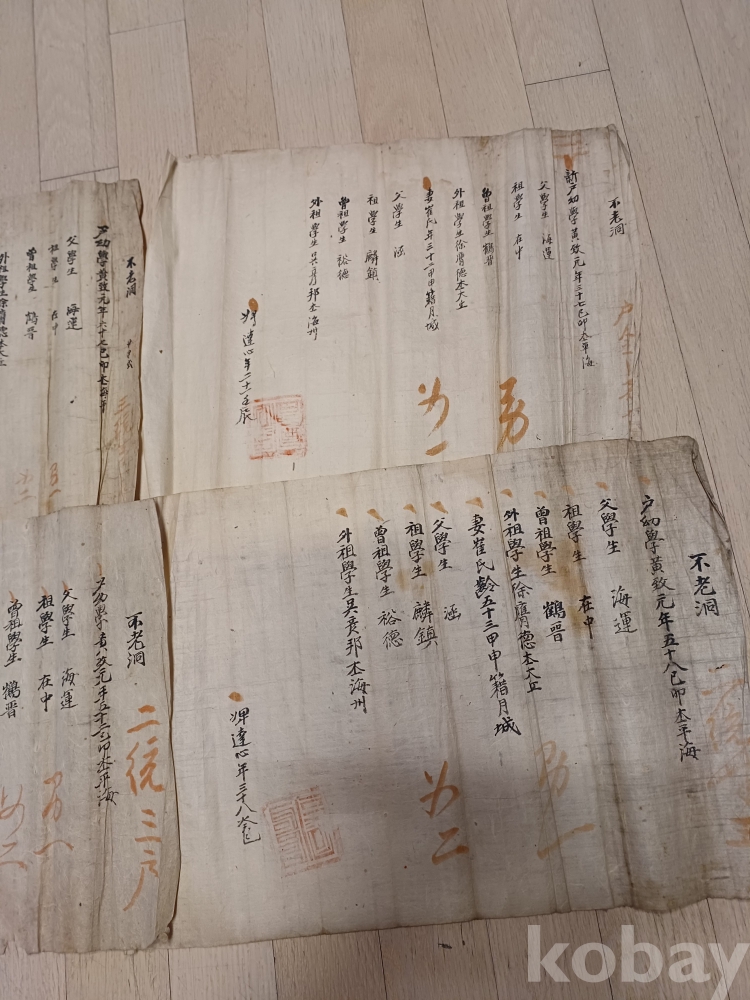 不老洞
新戶幼學黃致元年三十七己卯本平海
父學生 海運
祖學生 在中
曾祖學生 鶴晋
外祖學生徐膺德本大丘
妻崔氏年三十二甲申籍月城
父學生 涵
祖學生 麟鎮
曾祖學生 裕德
外祖學生吳 邦本海州
婢達心年二十一壬辰
男
女一
不老洞
戶幼學黃致元年五十八己卯本平海
父學生 海運
祖學生 在中
曾祖學生 鶴晋
外祖學生徐膺德本大丘
妻崔氏齡五十三甲申籍月城
父學生 涵
祖學生 麟鎮
曾祖學生 裕德
外祖學生吳 邦本海州
婢達心年三十八癸巳
男一
女二
不老洞
戶幼學黃致元年六十七己卯本平海
父學生 海運
祖學生 在中
曾祖學生 鶴晋
外祖學生徐膺德本大丘
不老洞
二統三戶
戶幼學黃致元年五十 己卯本平海
父學生 海運
祖學生 在中
曾祖學生 鶴晋
男一
女二
kobay